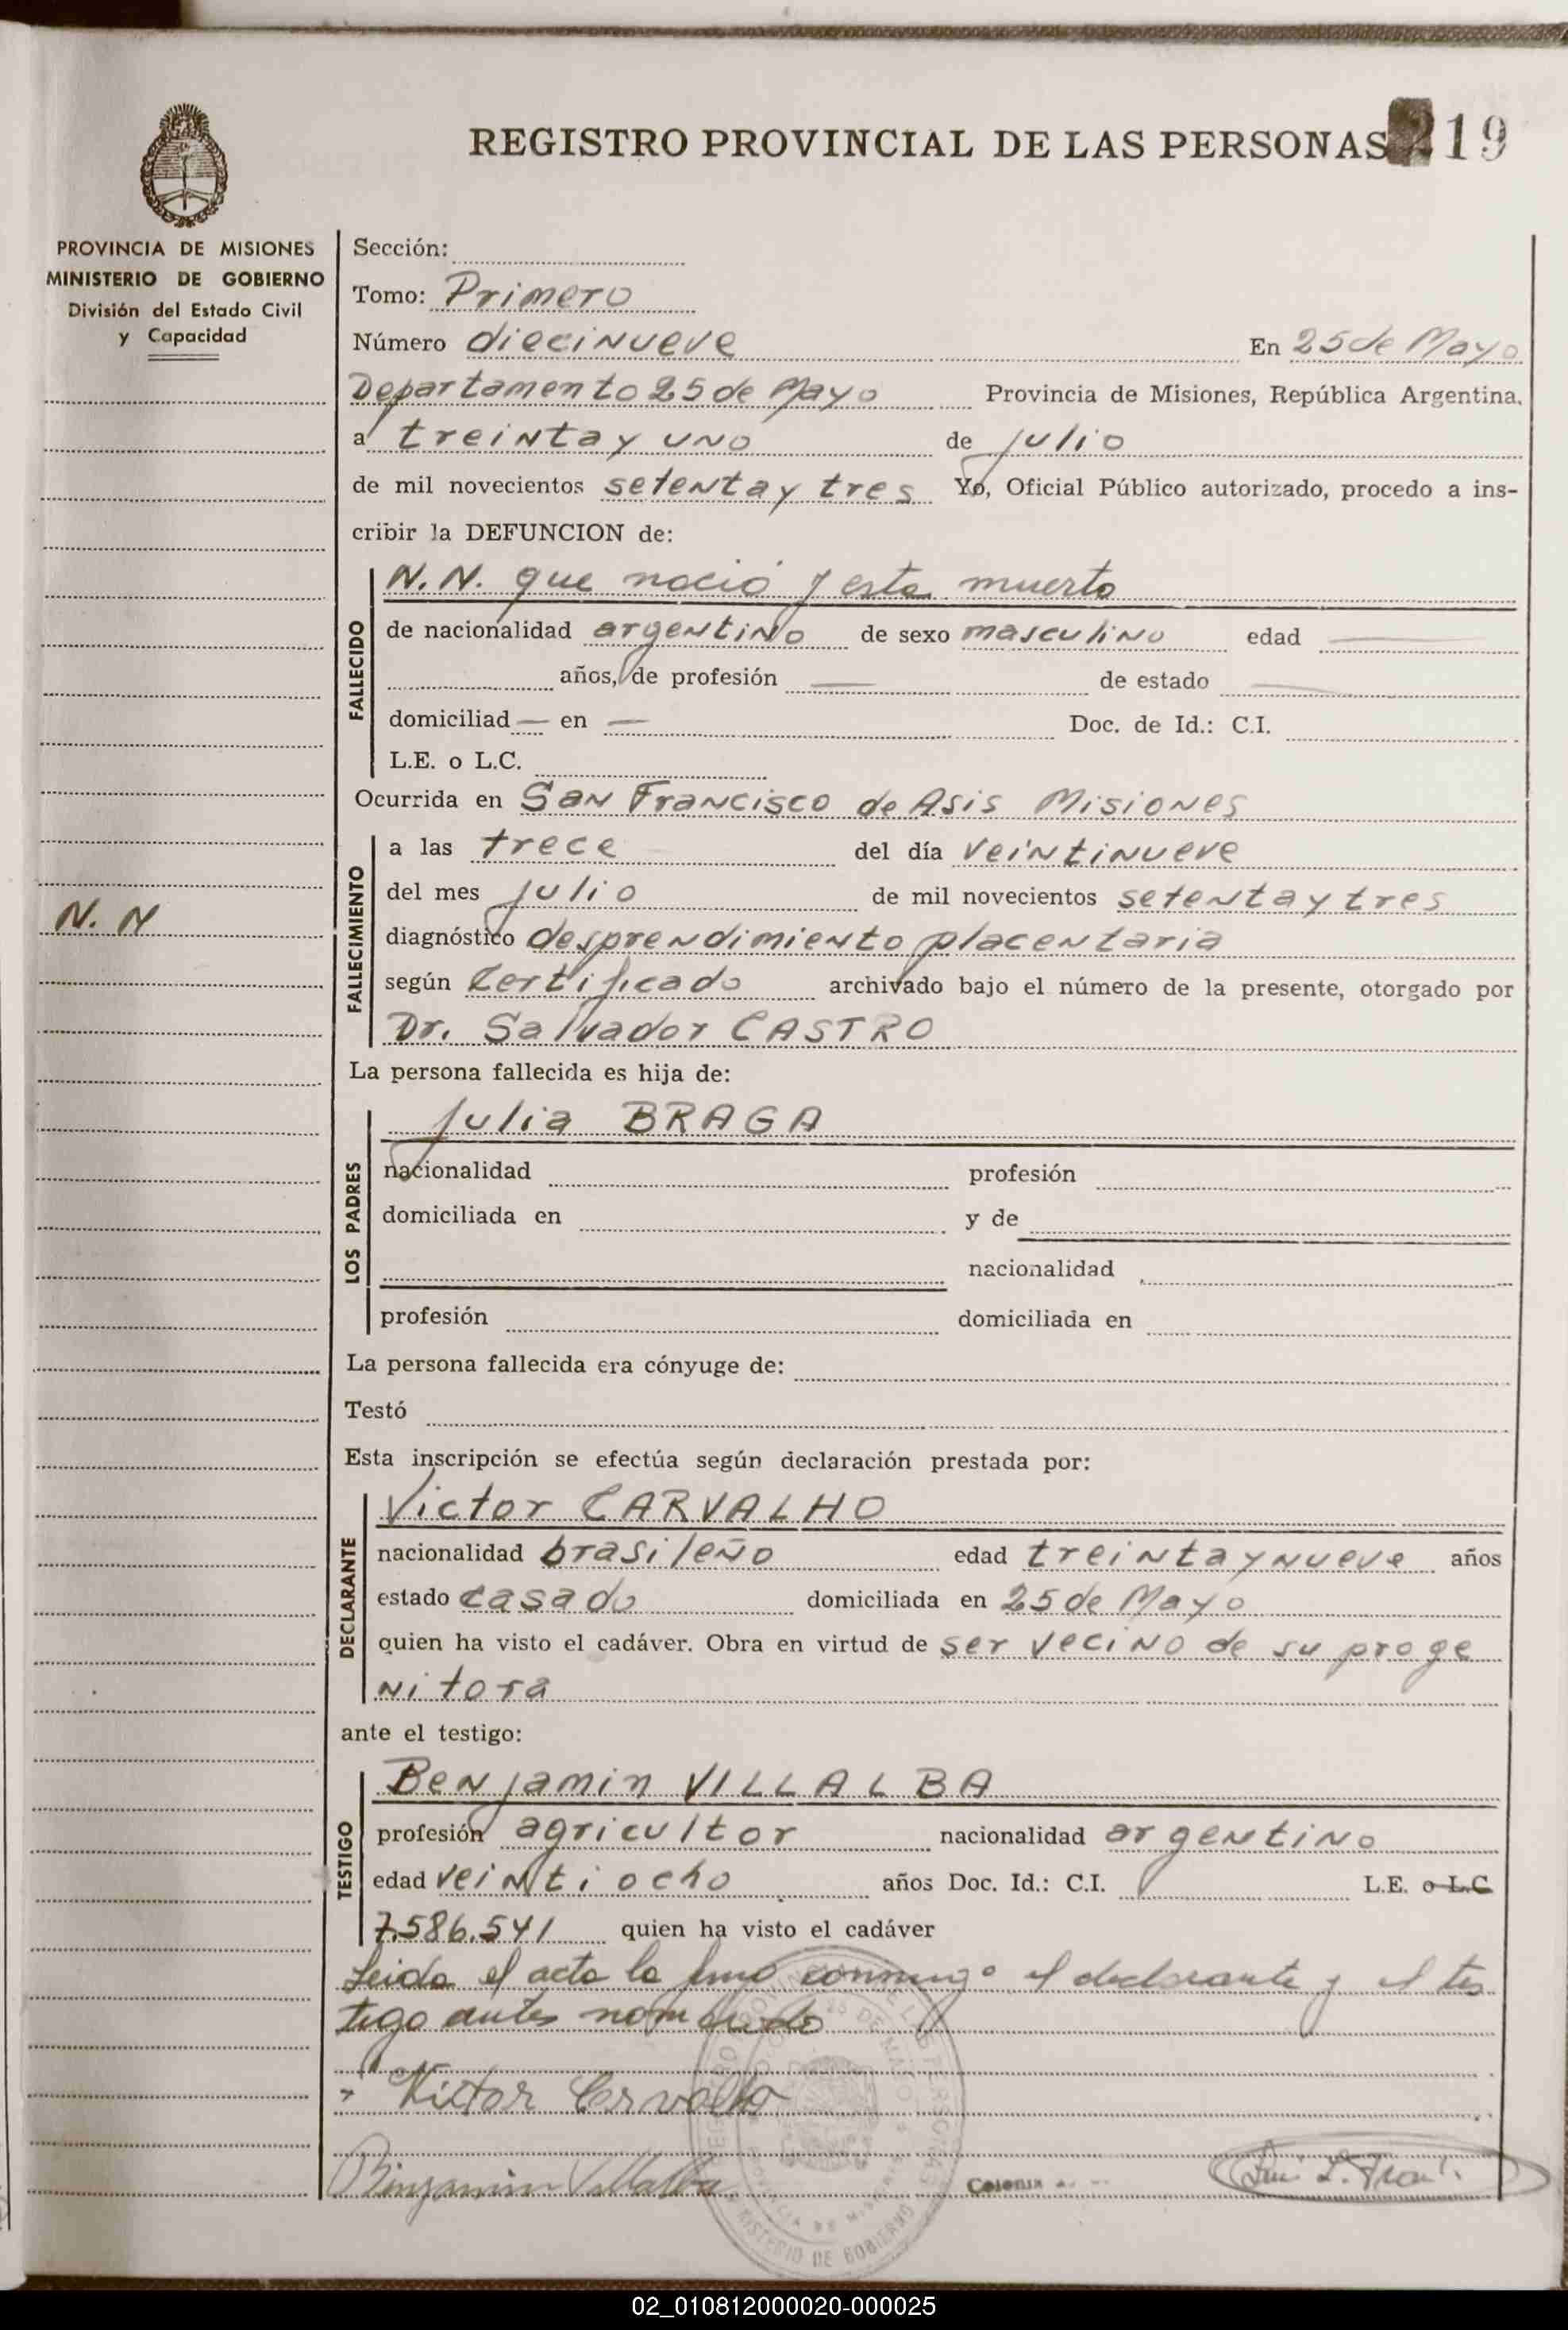 REGISTRO PROVINCIAL DE LAS PERSONAS 219
PROVINCIA DE MISIONES
MINISTERIO DE GOBIERNO
División del Estado Civil
y Capacidad
Sección:
Tomo: Primero
Número diecinueve En 25 de Mayo
Departamento 25 de Mayo Provincia de Misiones, República Argentina.
a treinta y uno de julio
de mil novecientos setenta y tres Yo, Oficial Público autorizado, procedo a ins-
cribir la DEFUNCION de:
FALLECIDO
N.N. que nació y esta muerto
de nacionalidad argentino de sexo masculino edad —
años, de profesión — de estado —
domiciliad — en — Doc. de Id.: C.I.
L.E. o L.C.
Ocurrida en San Francisco de Asis Misiones
FALLECIMIENTO
a las trece del día veintinueve
del mes julio de mil novecientos setenta y tres
N. N
diagnóstico desprendimiento placentaria
según Certificado archivado bajo el número de la presente, otorgado por
Dr. Salvador CASTRO
La persona fallecida es hija de:
LOS PADRES
Julia BRAGA
nacionalidad profesión
domiciliada en y de
nacionalidad
profesión domiciliada en
La persona fallecida era cónyuge de:
Testó
Esta inscripción se efectúa según declaración prestada por:
DECLARANTE
Victor CARVALHO
nacionalidad brasileño edad treinta y nueve años
estado casado domiciliada en 25 de Mayo
quien ha visto el cadáver. Obra en virtud de ser vecino de su proge
nitora
ante el testigo:
TESTIGO
Benjamin VILLALBA
profesión agricultor nacionalidad argentino
edad veintiocho años Doc. Id.: C.I. L.E. o L.C
7.586.541 quien ha visto el cadáver
Leida el acta la firmo conmigo el declarante y el tes
tigo antes nombrado
Victor Carvalho
Binjamin Villalba
Colonia
MINISTERIO DE GOBIERNO
02_010812000020-000025